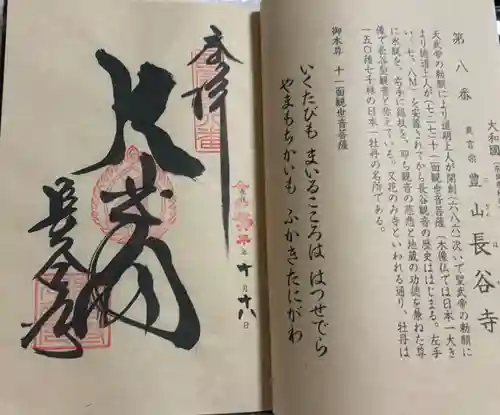 第八番
大和國
真言宗 豊山 長谷寺
天武帝の勅願により道明上人が開創(六八六)次いで聖武帝の勅願に
より徳道上人が(七二七)十一面観世音菩薩(木像仏では日本一大き
い、七、八M)を安置されてから長谷観音の歴史ははじまる。左手
に水瓶を、右手に錫杖を、即ち観音の慈悲と地蔵の功徳を兼ねた尊
像で長谷型観音と称えている。又花のみ寺といわれる通り、牡丹は
一五〇種七千株の日本一牡丹の名所である。
御本尊 十一面観世音菩薩
いくたびも まいるこころは はつせでら
やまもちかいも ふかきたにがわ
奉拝
大悲閣
長谷寺
年十月十八日